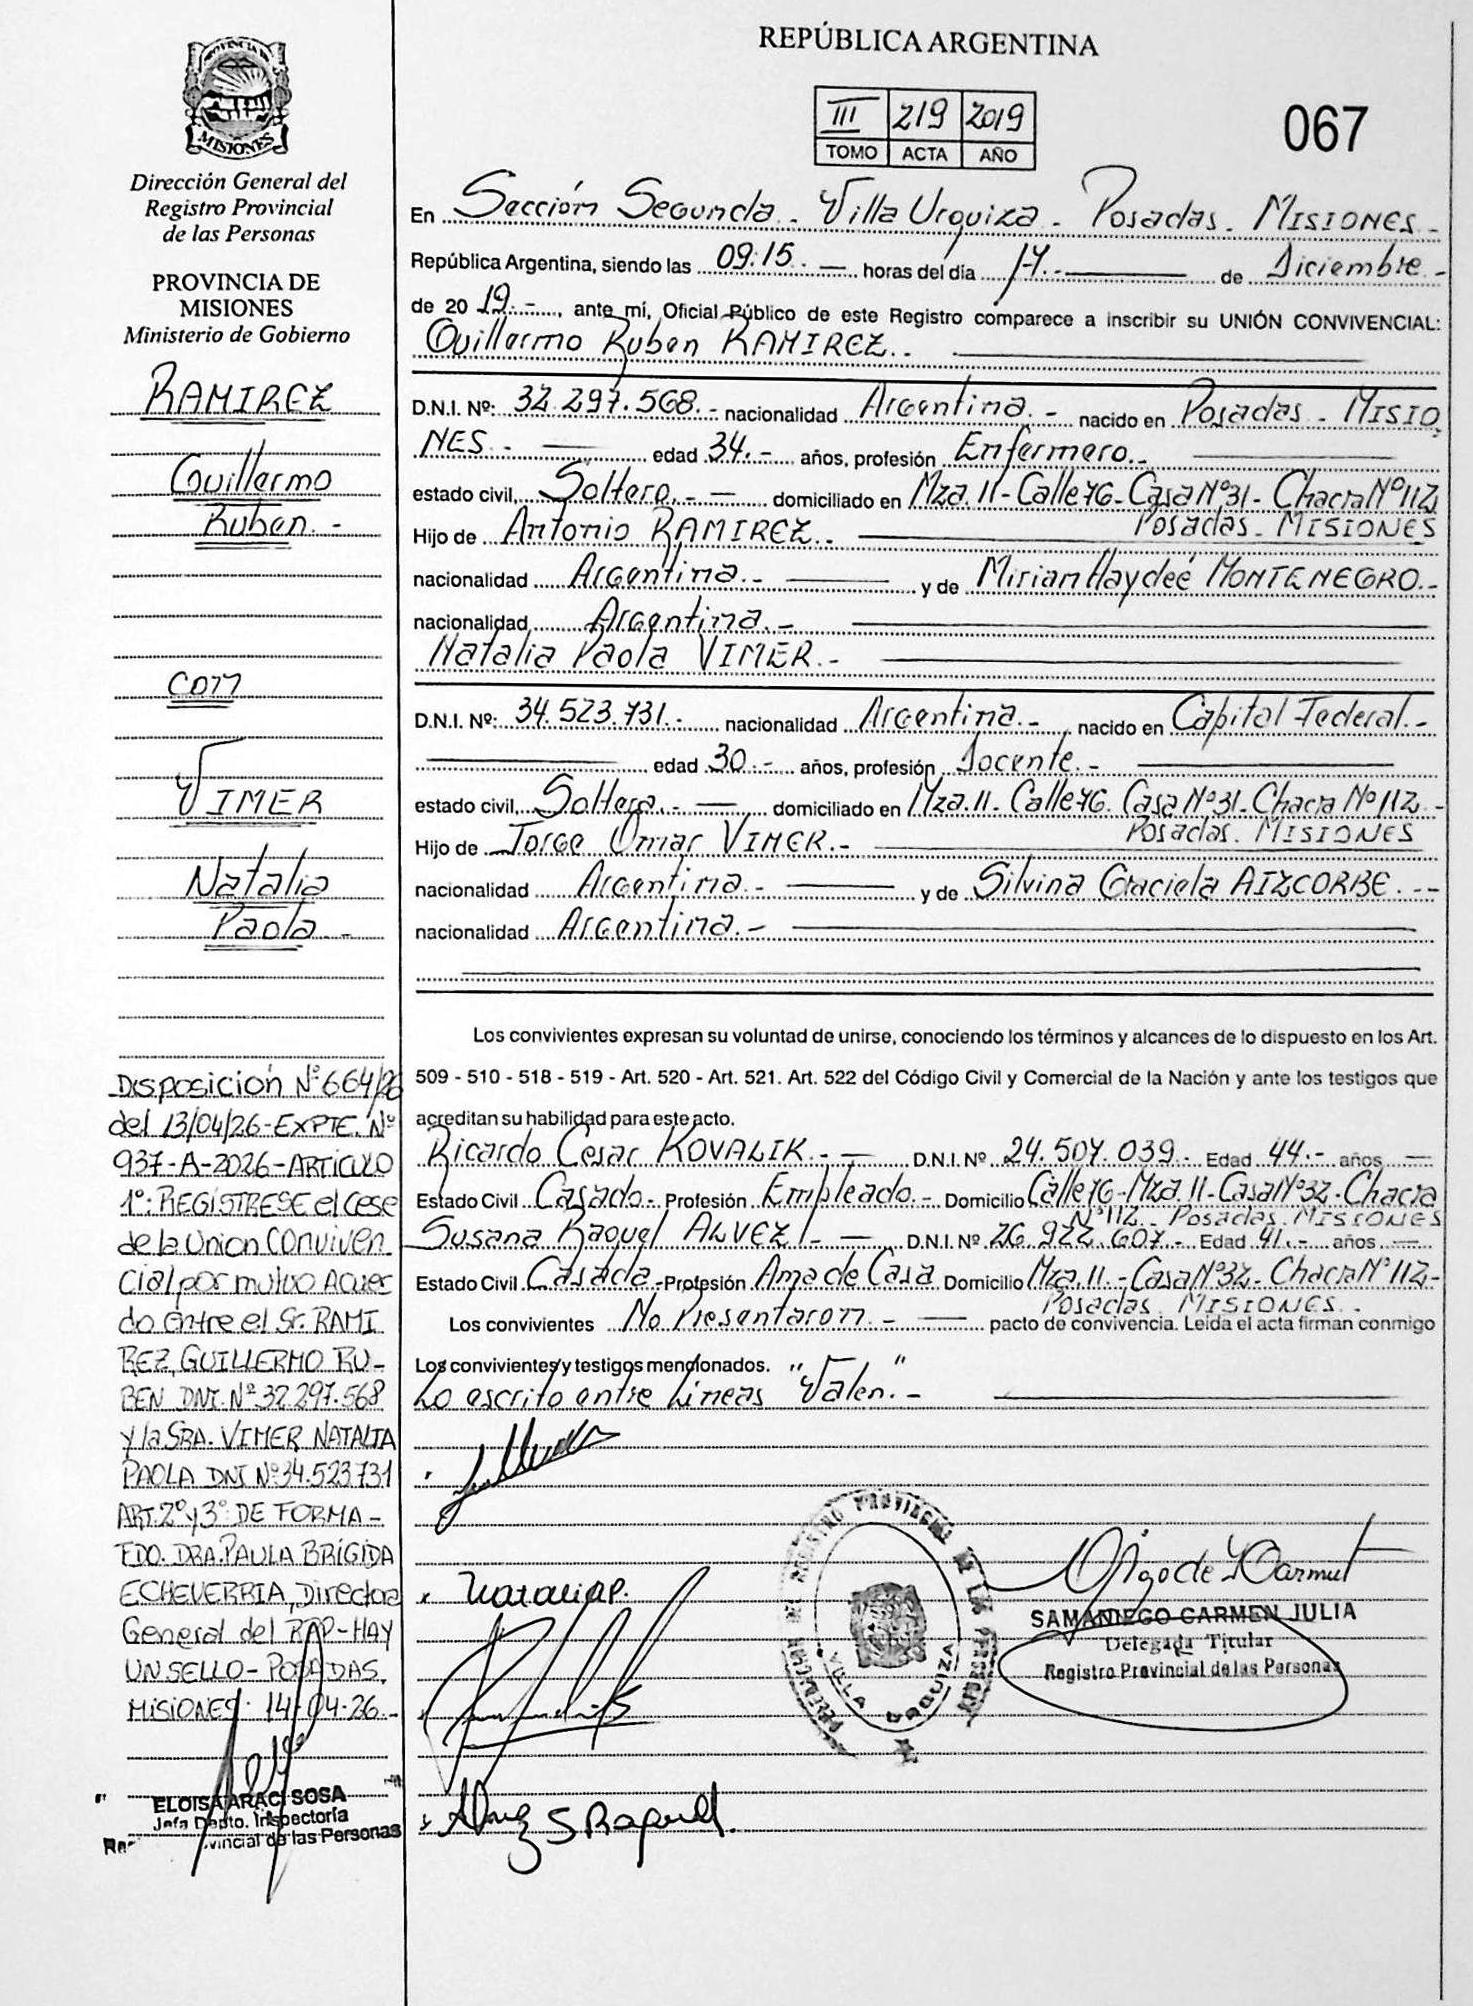 REPÚBLICA ARGENTINA
PROVINCIA DE
MISIONES
III 219 2019
TOMO ACTA AÑO
067
Dirección General del
Registro Provincial
de las Personas
PROVINCIA DE
MISIONES
Ministerio de Gobierno
RAMIREZ
Guillermo
Ruben.-
con
VIMER
Natalia
Paola.-
Disposición Nº 664/26
del 13/04/26-EXPTE. Nº
937-A-2026-ARTICULO
1º: REGÍSTRESE el cese
de la Union CONVIVEN
cial por mutuo Acuer
do entre el Sr. RAMI
REZ, GUILLERMO RU-
BEN DNI. Nº 32.297.568
y la SRA. VIMER NATALIA
PAOLA DNI Nº 34.523.731
ART. 2º y 3º: DE FORMA-
FDO. DRA. PAULA BRÍGIDA
ECHEVERRIA, Directora
General del RPP-HAY
UN SELLO-POSADAS,
MISIONES: 14-04-26.-
ELOISA ARACI SOSA
Jefa Depto. Inspectoría
vincial de las Personas
En Sección Segunda - Villa Urquiza - Posadas - MISIONES -
República Argentina, siendo las 09:15.- horas del día 17.- de Diciembre.-
de 20 19.-, ante mí, Oficial Público de este Registro comparece a inscribir su UNIÓN CONVIVENCIAL:
Guillermo Ruben RAMIREZ.-
D.N.I. Nº: 32.297.568.- nacionalidad Argentina.- nacido en Posadas - MISIO
NES.- edad 34.- años, profesión Enfermero.-
estado civil, Soltero.- domiciliado en Mza. 11 - Calle 76 - Casa Nº 31 - Chacra Nº 112
Posadas - MISIONES
Hijo de Antonio RAMIREZ.-
nacionalidad Argentina.- y de Mirian Haydeé MONTENEGRO.-
nacionalidad Argentina.-
Natalia Paola VIMER.-
D.N.I. Nº: 34.523.731.- nacionalidad Argentina.- nacido en Capital Federal.-
edad 30.- años, profesión Docente.-
estado civil, Soltera.- domiciliado en Mza. 11 - Calle 76. Casa Nº 31 - Chacra Nº 112.-
Posadas. MISIONES
Hijo de Jorge Omar VIMER.-
nacionalidad Argentina.- y de Silvina Graciela AIZCORBE.-
nacionalidad Argentina.-
Los convivientes expresan su voluntad de unirse, conociendo los términos y alcances de lo dispuesto en los Art.
509 - 510 - 518 - 519 - Art. 520 - Art. 521. Art. 522 del Código Civil y Comercial de la Nación y ante los testigos que
acreditan su habilidad para este acto.
Ricardo Cesar KOVALIK.- D.N.I. Nº 24.507.039.- Edad 44.- años
Estado Civil Casado.- Profesión Empleado.- Domicilio Calle 76 - Mza. 11 - Casa Nº 32 - Chacra
Nº 112 - Posadas. MISIONES
Susana Raquel ALVEZ.- D.N.I. Nº 26.922.607.- Edad 41.- años
Estado Civil Casada - Profesión Ama de Casa Domicilio Mza. 11.- Casa Nº 32 - Chacra Nº 112 -
Posadas. MISIONES.-
Los convivientes No Presentaron.- pacto de convivencia. Leída el acta firman conmigo
Los convivientes y testigos mencionados.
Lo escrito entre líneas "Valen".-
Natalia P.
Alvez S Raquel.
VILLA URQUIZA
SAMANIEGO CARMEN JULIA
Delegada Titular
Registro Provincial de las Personas